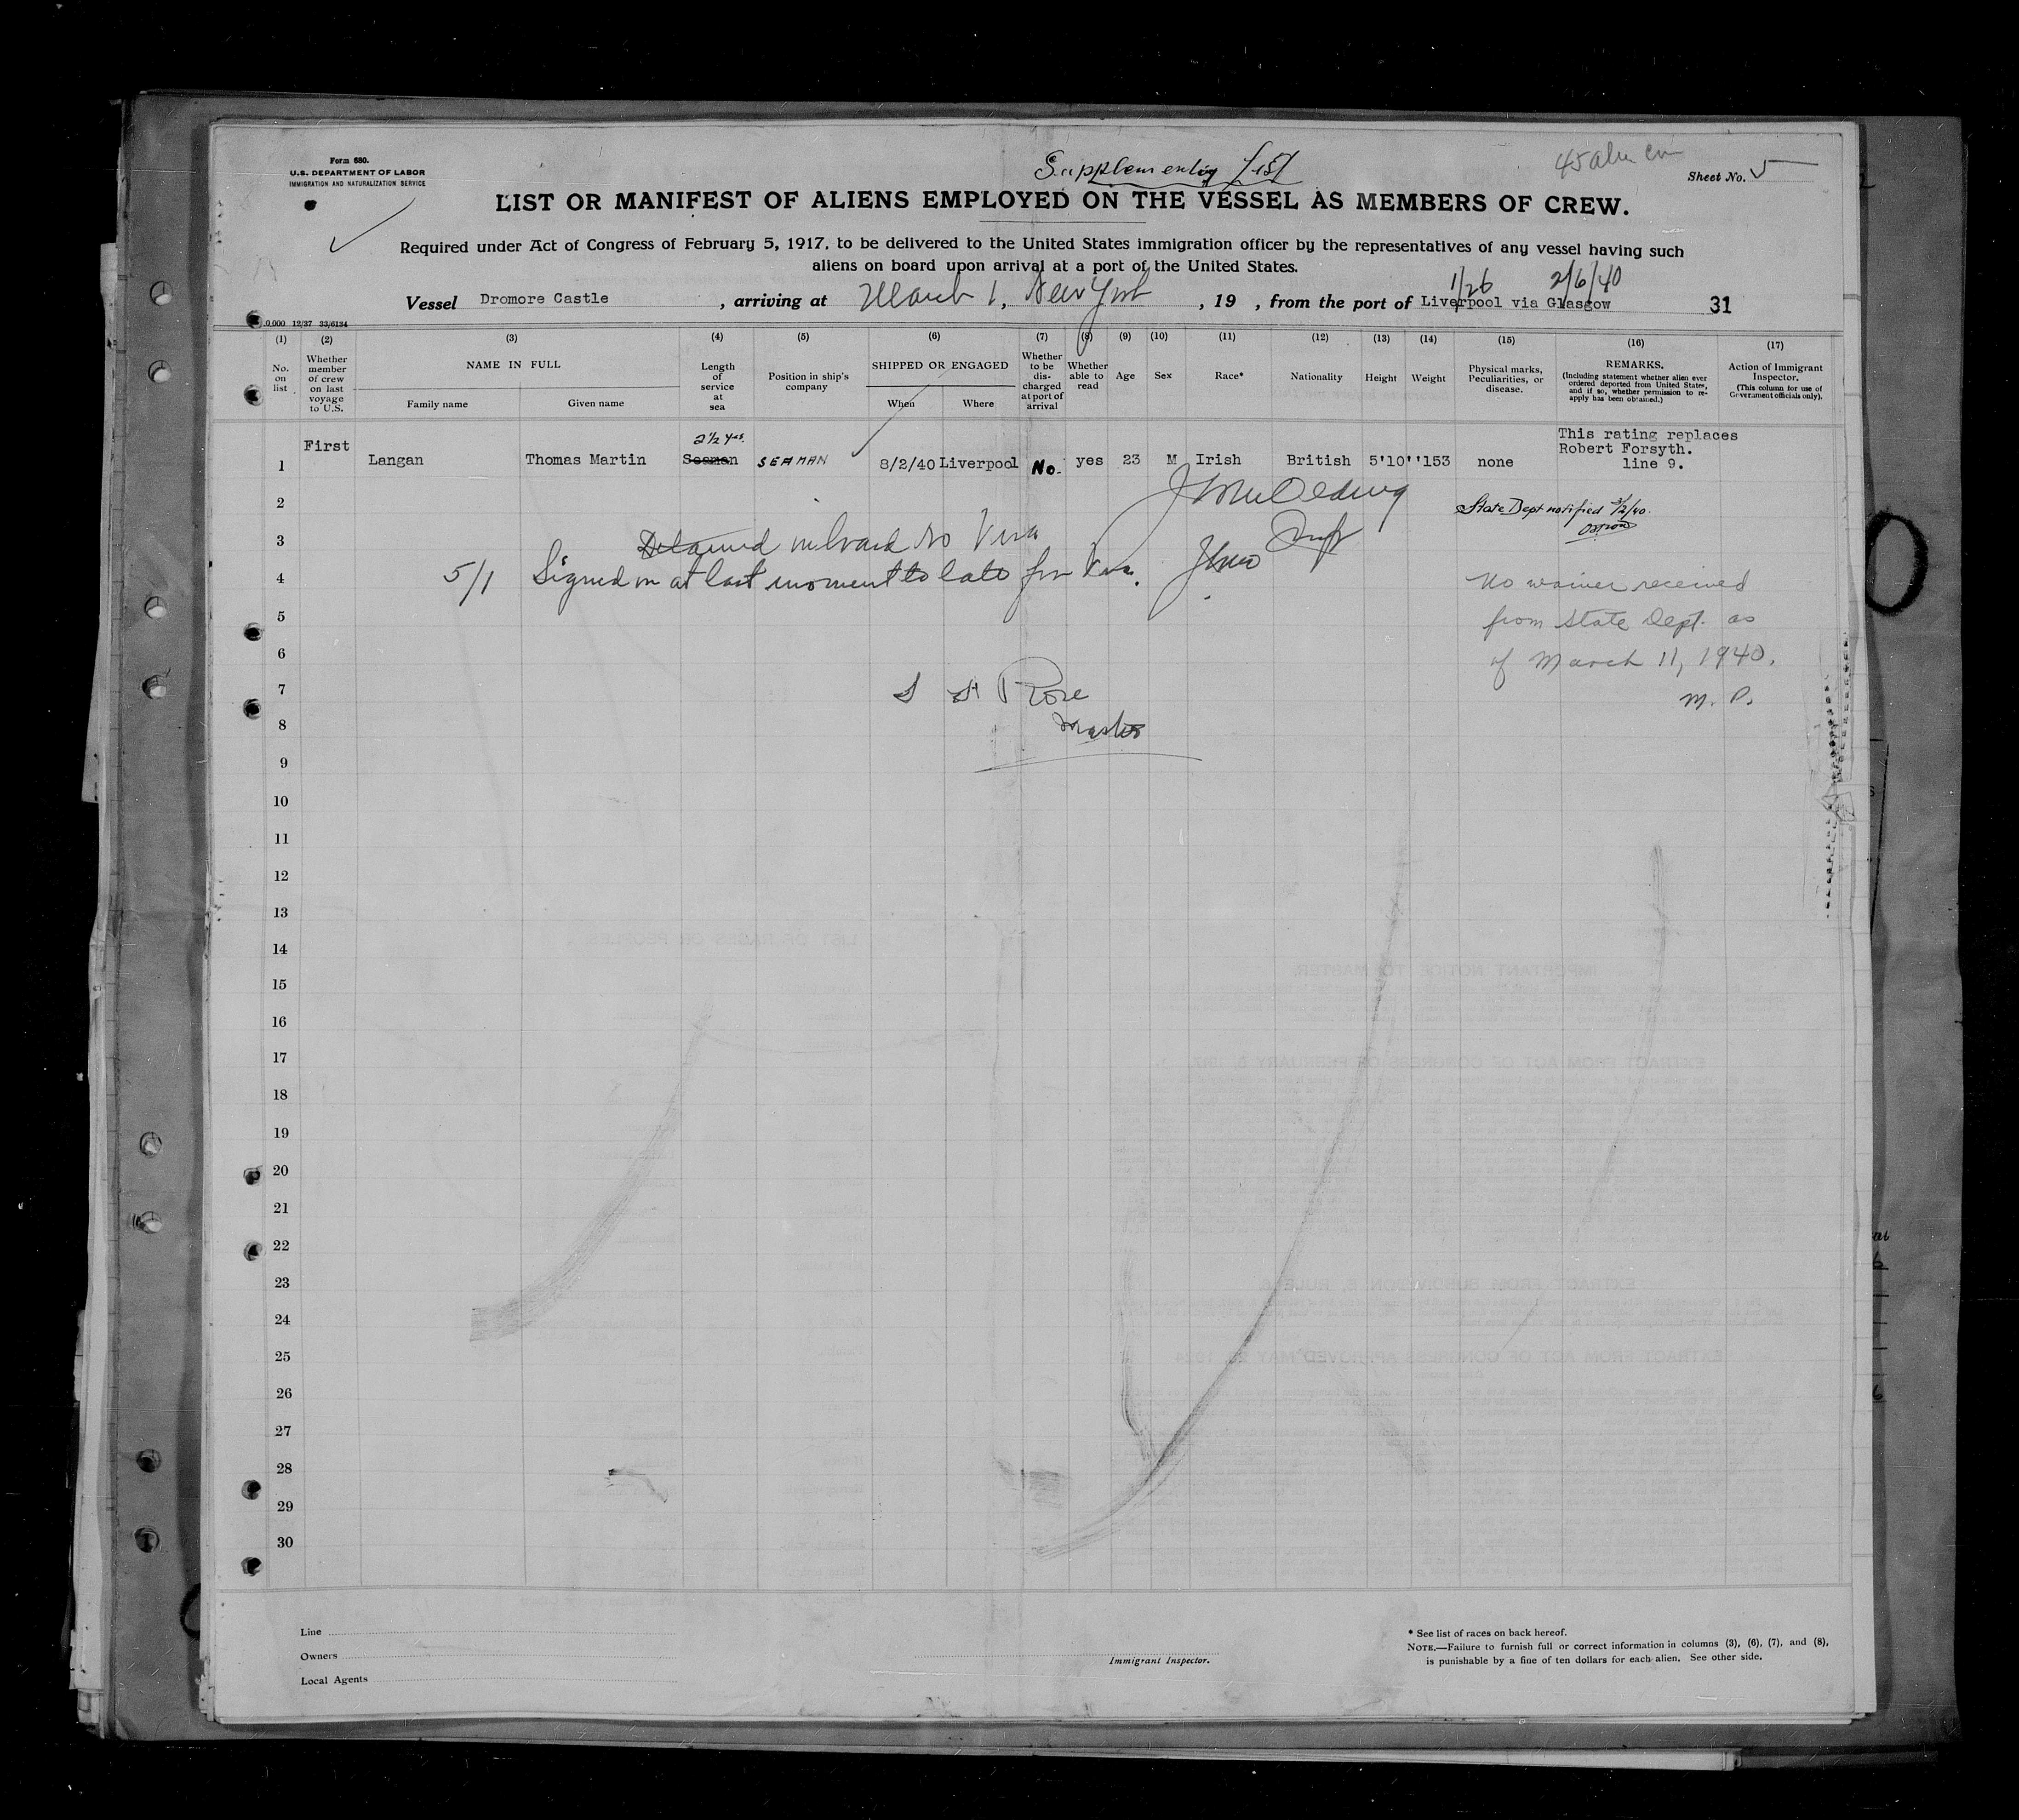 Form 680.
U.S. DEPARTMENT OF LABOR
IMMIGRATION AND NATURALIZATION SERVICE
Supplementary List
45
Sheet No. 5
LIST OR MANIFEST OF ALIENS EMPLOYED ON THE VESSEL AS MEMBERS OF CREW.
Required under Act of Congress of February 5, 1917, to be delivered to the United States immigration officer by the representatives of any vessel having such
aliens on board upon arrival at a port of the United States.
1/26 2/6/40
Vessel Dromore Castle , arriving at March 1, New York , 19 , from the port of Liverpool via Glasgow 31
(1) (2) (3) (4) (5) (6) (7) (8) (9) (10) (11) (12) (13) (14) (15) (16) (17)
No. on list
Whether member of crew on last voyage to U.S.
NAME IN FULL
Family name Given name
Length of service at sea
Position in ship's company
SHIPPED OR ENGAGED
When Where
Whether to be discharged at port of arrival
Whether able to read
Age
Sex
Race*
Nationality
Height
Weight
Physical marks, Peculiarities, or disease.
REMARKS.
(Including statement whether alien ever ordered deported from United States, and if so, whether permission to re-apply has been obtained.)
Action of Immigrant Inspector.
(This column for use of Government officials only).
1 First Langan Thomas Martin 2½ yrs. Seaman SEAMAN 8/2/40 Liverpool No. yes 23 M Irish British 5'10'' 153 none This rating replaces
Robert Forsyth.
line 9.
2 State Dept notified 3/2/40.
3 Detained on board No Visa
4 5/1 Signed on at last moment to late for Visa.
No waiver received
5 from State Dept. as
6 of March 11, 1940.
7 Rose M. P.
8 Master
9
10
11
12
13
14
15
16
17
18
19
20
21
22
23
24
25
26
27
28
29
30
Line
Owners
Local Agents
Immigrant Inspector.
* See list of races on back hereof.
NOTE.—Failure to furnish full or correct information in columns (3), (6), (7), and (8),
is punishable by a fine of ten dollars for each alien. See other side.